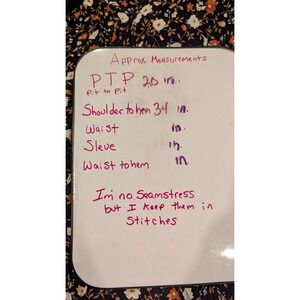 Approx Measurements
PTP 20 in.
Pit to Pit
Shoulder to hem 34 in.
Waist in.
Sleve in.
Waist to hem in
I'm no Seamstress
but I keep them in
Stitches